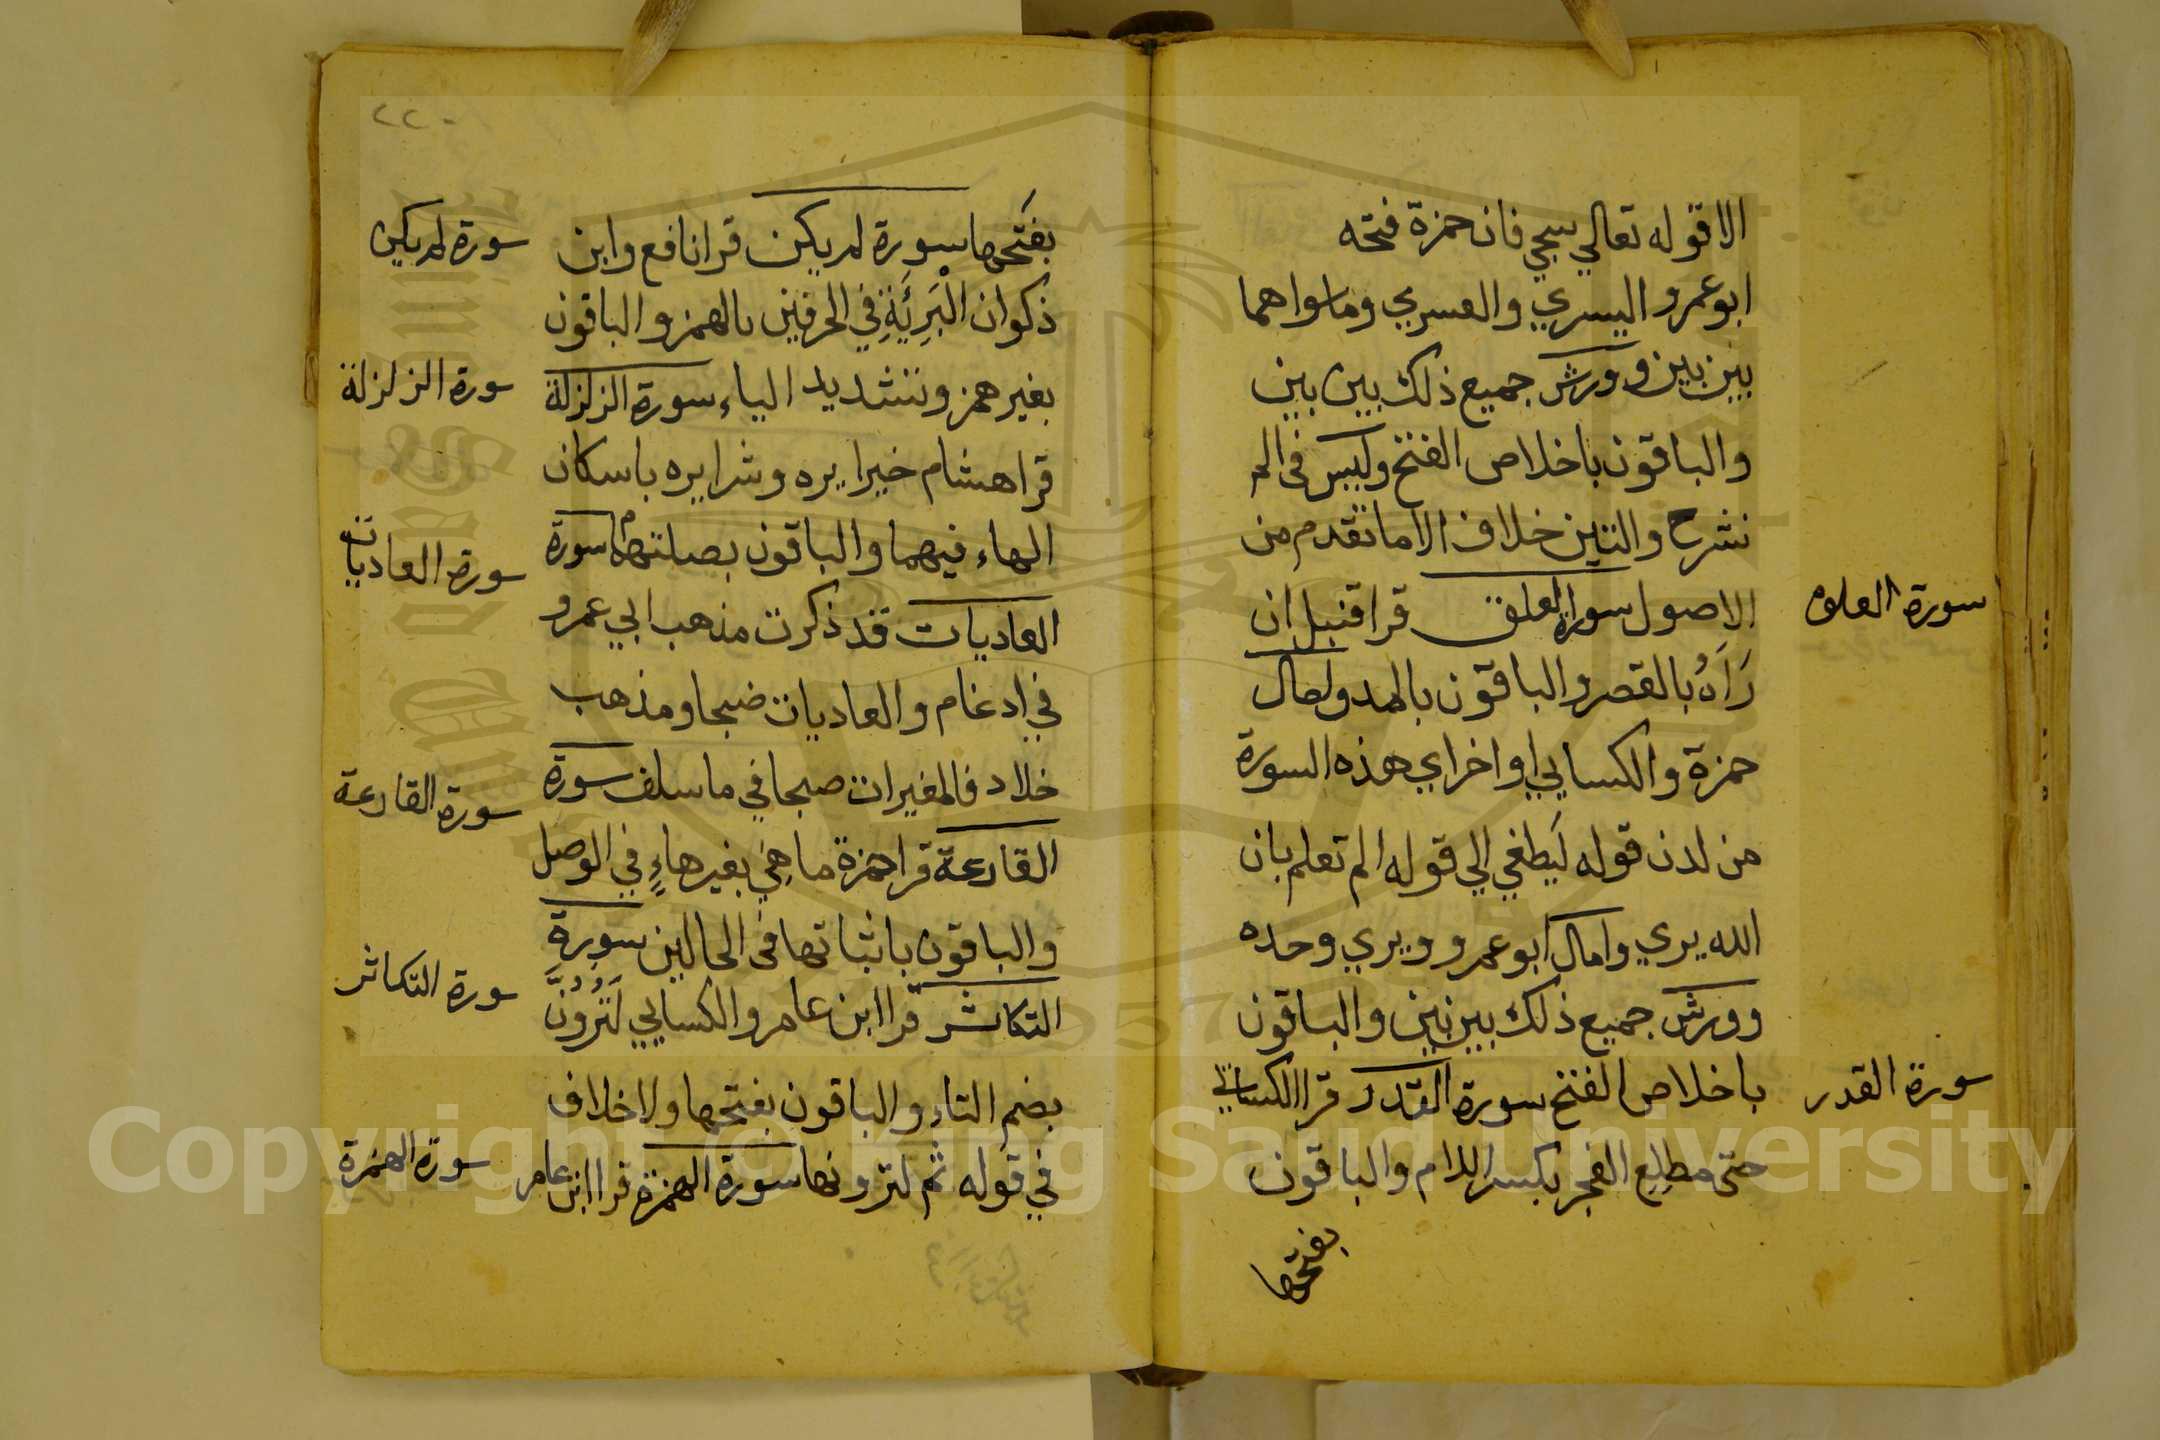 الا قوله تعالي سجي فان حمزة فتحه
ابو عمرو اليسري والعسري وماسواهما
بين بين وورش جميع ذلك بين بين
والباقون باخلاص الفتح وليس في الم
نشرح والتين خلاف الا ما تقدم من
الاصول سورة العلق قرا قنبل ان
سورة العلق
رَاَهُ بالقصر والباقون بالمد وامال
حمزة والكسايي اواخر اي هذه السورة
من لدن قوله لَيطغي الي قوله الم تعلم بان
الله يري وامال ابو عمرو ويري وحده
وورش جميع ذلك بين بين والباقون
باخلاص الفتح سورة القدر قرا الكسايي
سورة القدر
حتى مطلع الفجر بكسر اللام والباقون
بفتحها
٢٢٠
بفتحها سورة لم يكن قرا نافع وابن
سورة لم يكن
ذكوان الْبَرِئَةِ في الحرفين بالهمز والباقون
بغير همز وتشديد الياء سورة الزلزلة
سورة الزلزلة
قرا هشام خيرا يره وشرا يره باسكان
الهاء فيهما والباقون بصلتهما سورة
سورة العاديات
العاديات قد ذكرت مذهب ابي عمرو
في ادغام والعاديات ضبحا ومذهب
خلاد فالمغيرات صبحا في ما سلف سورة
سورة القارعة
القارعة قرا حمزة ما هي بغير هاءٍ في الوصل
والباقون باثباتها في الحالين سورة
سورة التكاثر
التكاثر قرا ابن عامر والكسايي لَتُرَوُنَّ
بضم التاء والباقون بفتحها ولا خلاف
في قوله ثم لترونها سورة الهمزة قرا ابن عامر
سورة الهمزة
Copyright © King Saud University
1957